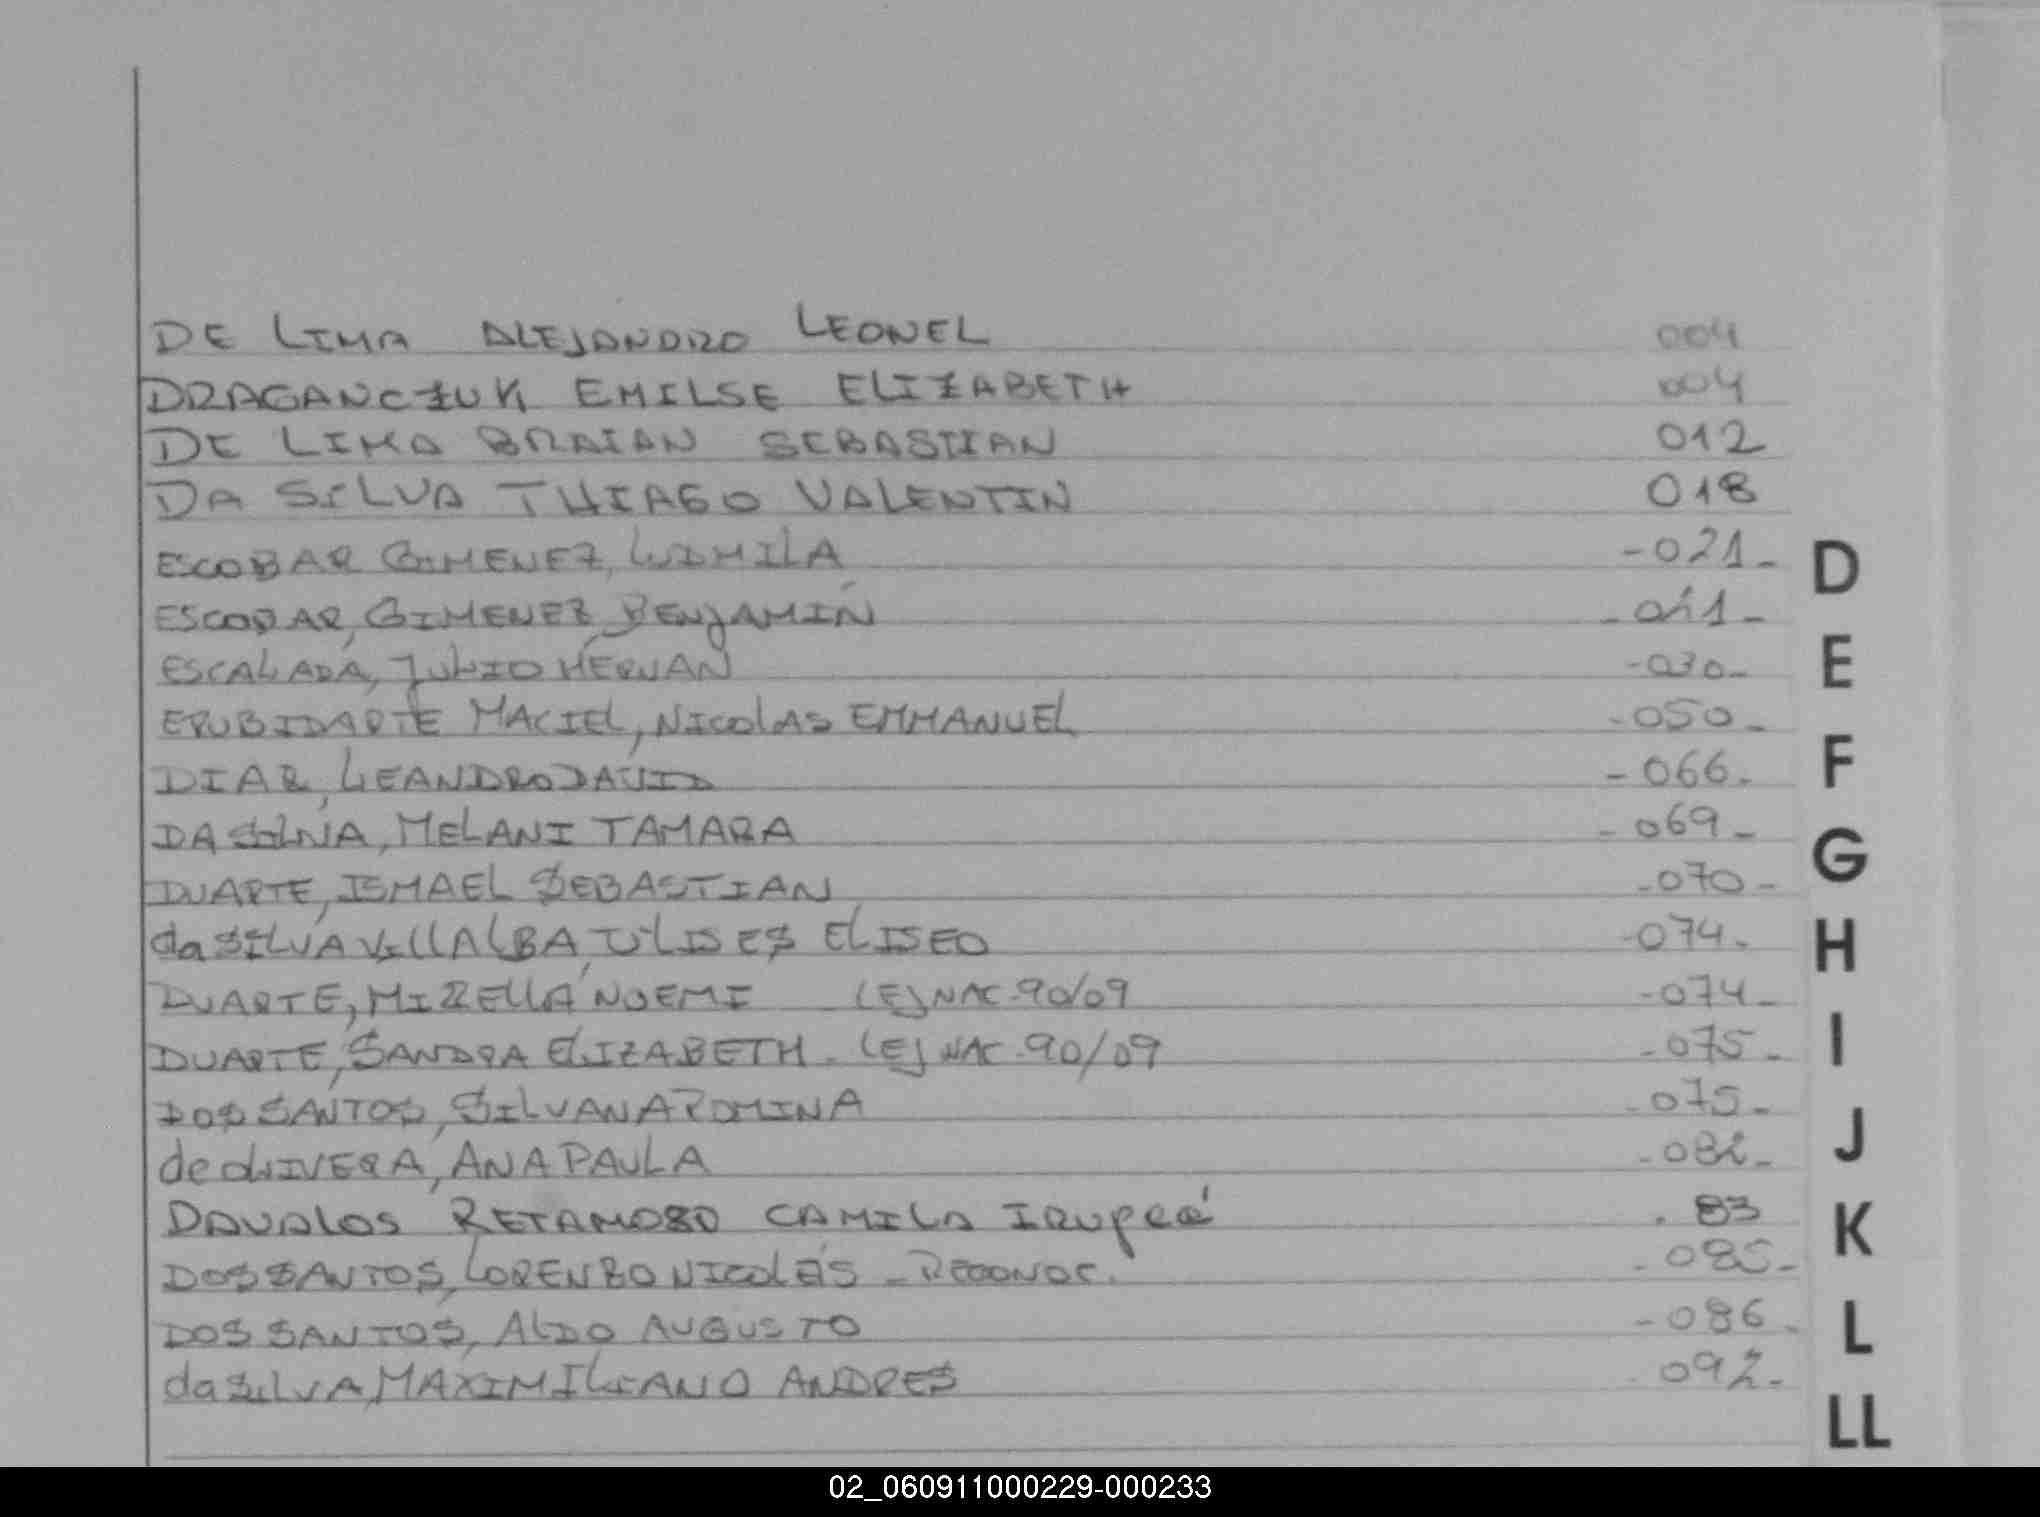 DE LIMA ALEJANDRO LEONEL 004
DRAGANCZUK EMILSE ELIZABETH 004
DE LIMA BRAIAN SEBASTIAN 012
DA SILVA THIAGO VALENTIN 018
ESCOBAR GIMENEZ, LUDMILA -021-
ESCOBAR, GIMENEZ, BENJAMIN
ESCALADA, JULIO HERNAN -030-
ERUBIDARTE MACIEL, NICOLAS EMMANUEL -050-
DIAZ, LEANDRO DAVID -066-
DA SILVA, MELANI TAMARA -069-
DUARTE, ISMAEL SEBASTIAN -070-
da SILVA VILLALBA, ULISES ELISEO -074-
DUARTE, MIZZELLA NOEMI LEJ NAC-90/09 -074-
DUARTE, SANDRA ELIZABETH - LEJ NAC-90/09 -075-
DOS SANTOS, SILVANA ROMINA -075-
de OLIVERA, ANA PAULA -082-
DAVALOS RETAMOZO CAMILA IRUPÉ . 83
DOS SANTOS, LORENZO NICOLÁS - RECONOC. -085-
DOS SANTOS, ALDO AUGUSTO -086-
da SILVA, MAXIMILIANO ANDRES 092-
D
E
F
G
H
I
J
K
L
LL
02_060911000229-000233